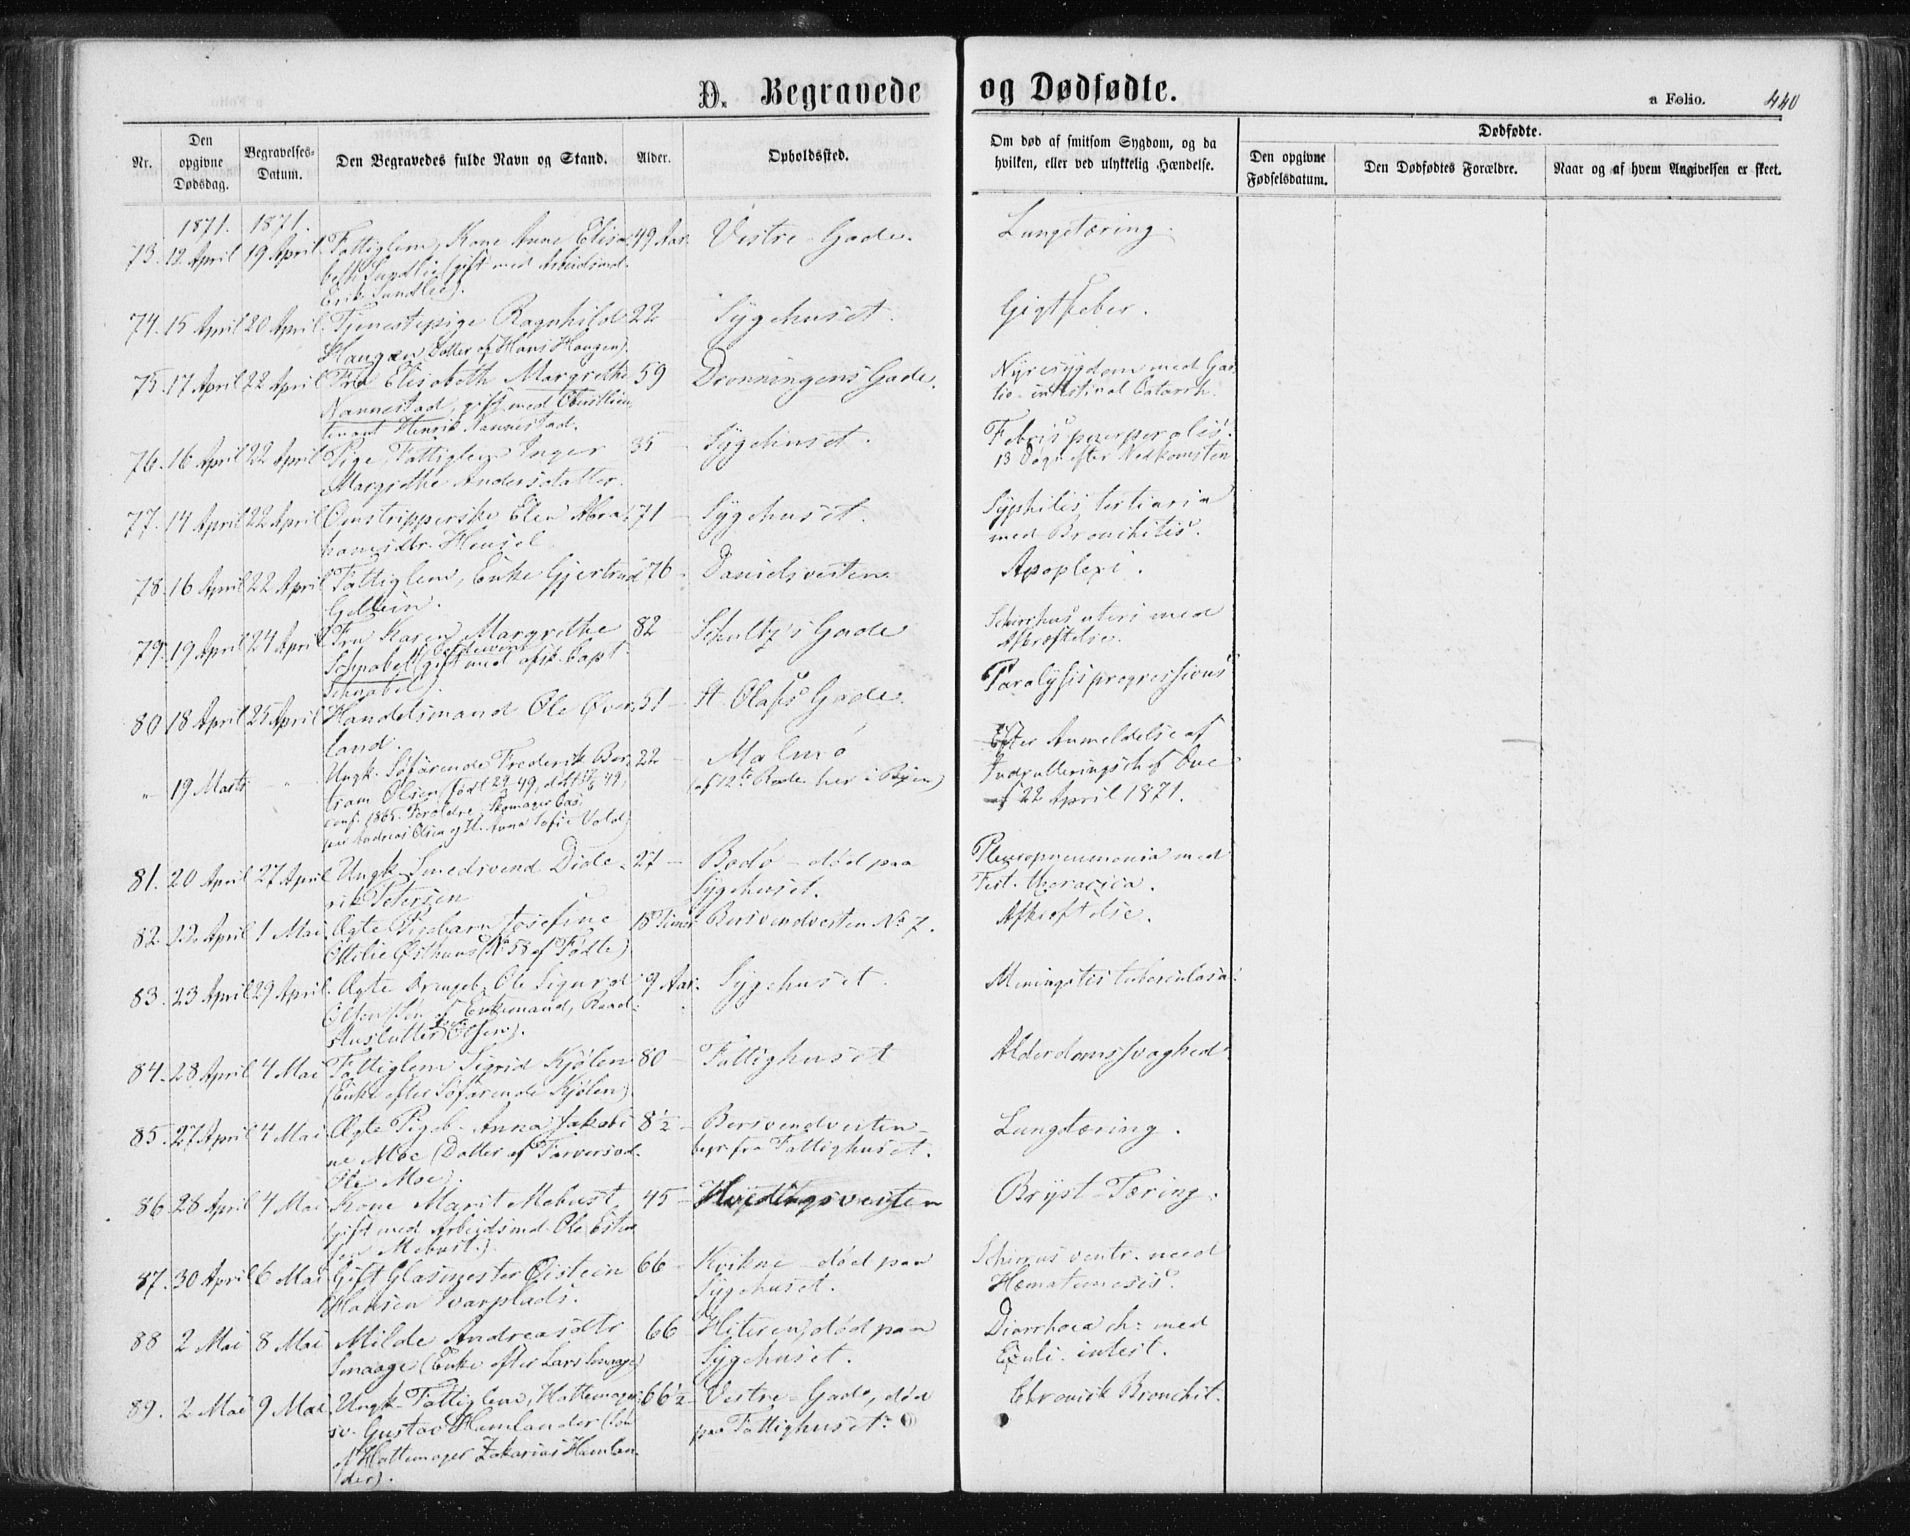 D. Begravede og Dødfødte.
a Folio. 440
Nr. | Den opgivne Dødsdag. | Begravelses-Datum. | Den Begravedes fulde Navn og Stand. | Alder. | Opholdssted. | Om død af smitsom Sygdom, og da hvilken, eller ved ulykkelig Hændelse. | Dødfødte. | Den opgivne Fødselsdatum. | Den Dødfødtes Forældre. | Naar og af hvem Angivelsen er skeet.
1871. 1871.
73. 12 April 19 April Fattiglem, Kone Anne Elisa- 49 Aar. Vestre Gade. Lungetæring.
beth Sundlie (gift med Arbeidsmd.
Erik Sundlie).
74. 15 April 20 April Tjenestepige Ragnhild 22 — Sygehuset. Gigtfeber.
Haugen (Datter af Hans Haugen).
75. 17 April 22 April Fru Elisabeth Margrethe 59 Dronningens Gade. Nyresygdom med Gas-
Nannestad, gift med Oberstlieu- tro-intestinal Catarrh.
tenant Henrik Nannestad.
76. 16 April 22 April Pige, Fattiglem Inger 35 — Sygehuset. Febris puerperalis.
Margrethe Andersdatter. 13 Dage efter Nedkomsten
77. 14 April 22 April Elen Abra- 71 — Sygehuset. Syphilis tertiaria
hamsdtr. Hensel. med Bronchitis.
78. 16 April 22 April Fattiglem, Enke Gjertrud 76 — Danielsveiten. Apoplexi.
79. 19 April 24 April Fru Karen Margrethe 82 — Schultz's Gade Schirrhus uteri med
Schnabel (gift med afsk. Capt. Afkræftelse.
Schnabel).
80 18 April 25 April Handelsmand Ole Øver- 51 — St. Olafs Gade. Paralysis progressiva
land.
" 19 Marts — " — Ungk. Søfarende Frederik Ber- 22 — Malmö Efter Anmeldelse af
tram Olsen (født 29 49, døbt 49, (af 12te Rode her i Byen) Indrulleringschef Due
conf. 1865. Forældre, Skomager Cas- af 22 April 1871.
per Andreas Olsen og H. Anna Sofie Vold)
81. 20 April 27 April Ungk. Smedsvend Dide- 27 — Bodö — död paa Pleuropneumonia med
rik Petersen Sygehuset. Fist. thoracica.
82. 13 April 1 Mai Ægte Pigebarn Josefine 18 Timer Bersvendveiten No 7. Afkræftelse.
Ottilie Østhuus (No 58 af Fødte)
83. 23 April 29 April. Ægte Drengeb. Ole Sigurd 9 Aar. Sygehuset. Meningitis tuberculosa.
Olsen (Søn af Enkemand, Raad-
stuslutter Olsen).
84. 28 April 4 Mai Fattiglem Sigrid Kjölen 80 — Fattighuset Alderdomssvaghed
(Enke efter Søfarende Kjölen).
85. 27 April 4 Mai Ægte Pigeb. Anna Jakobi- 8½ — Bersvendveiten — Lungetæring.
ne Moe (Datter af Farversvd. begr. fra Fattighuset.
Moe).
86 28 April 4 Mai Kone Marit Mebust, 45 — Hvedingsveiten Bryst-Tæring.
gift med Arbeidsmd. Ole Esten-
sen Mebust.).
87. 30 April 6 Mai Gift Glasmester Øistein 66 — Kvikne — död paa Schirrus ventr. med
Hansen Svarplads. Sygehuset. Hæmatemesis.
88 2 Mai 8 Mai Milde Andreasdtr 66 — Hiteren, död paa Diarrhoea ch: med
Smaage (Enke efter Lars Smaage) Sygehuset. intest.
89. 2 Mai 9 Mai. Ungk. Fattiglem, Hattemager- 66½ — Vestre Gade, död Chronisk Bronchit.
sv. Gustav Hamlander (Søn paa Fattighuset.
af Hattemager Zakarias Hamlan-
der).